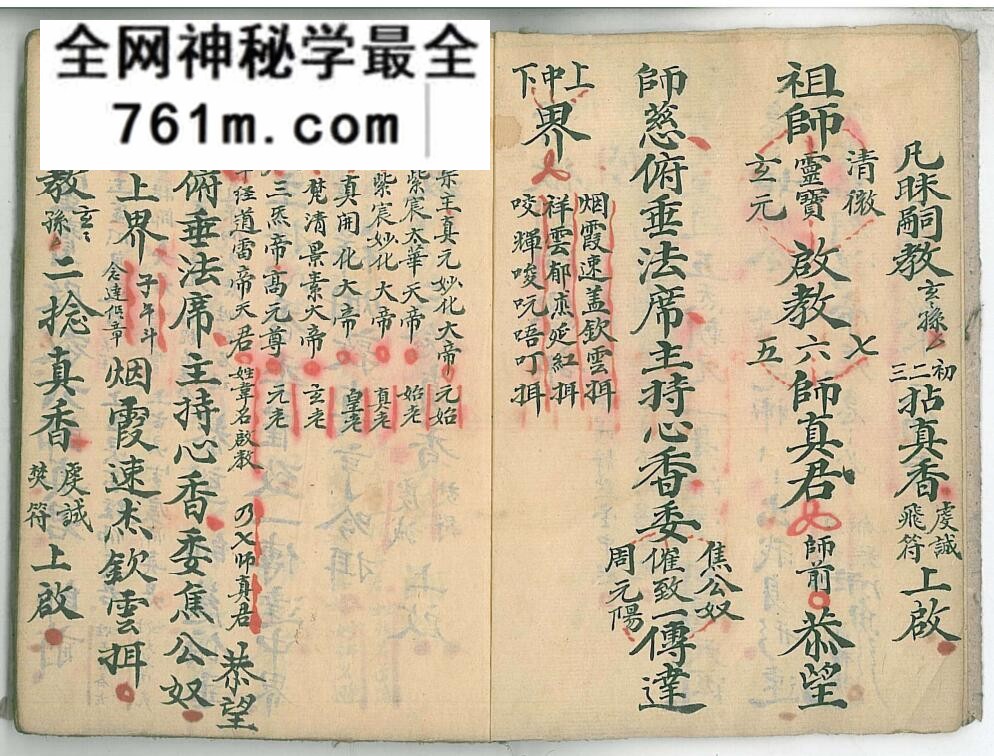 全网神秘学最全
761m.com
凡昧嗣教玄玄孫厶初二三拈真香虔誠飛符上啟
祖師清微靈寶玄元啟教七六五師真君師前恭望
師慈俯垂法席主持心香委焦公奴周元陽催致一傳達
上中下界
烟霞速盖欽雲挕
祥雲郁羔延紅挕
咬輝唆吭唔叮挕
主真元妙化大帝元始
紫宸太華天帝始老
紫宸妙化大帝真老
真開化大帝皇老
梵清景素大帝玄老
三炁帝高元尊元老
經道雷帝天君姓韋名啟教乃七師真君恭望
俯垂法席主持心香委焦公奴
上界子午斗烟霞速杰欽雲挕
教玄玄孫厶念達悃章二捻真香虔誠焚符上啟